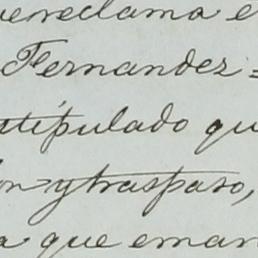 reclama e
Fernandez =
stipulado qu
on y traspaso,
a que eman